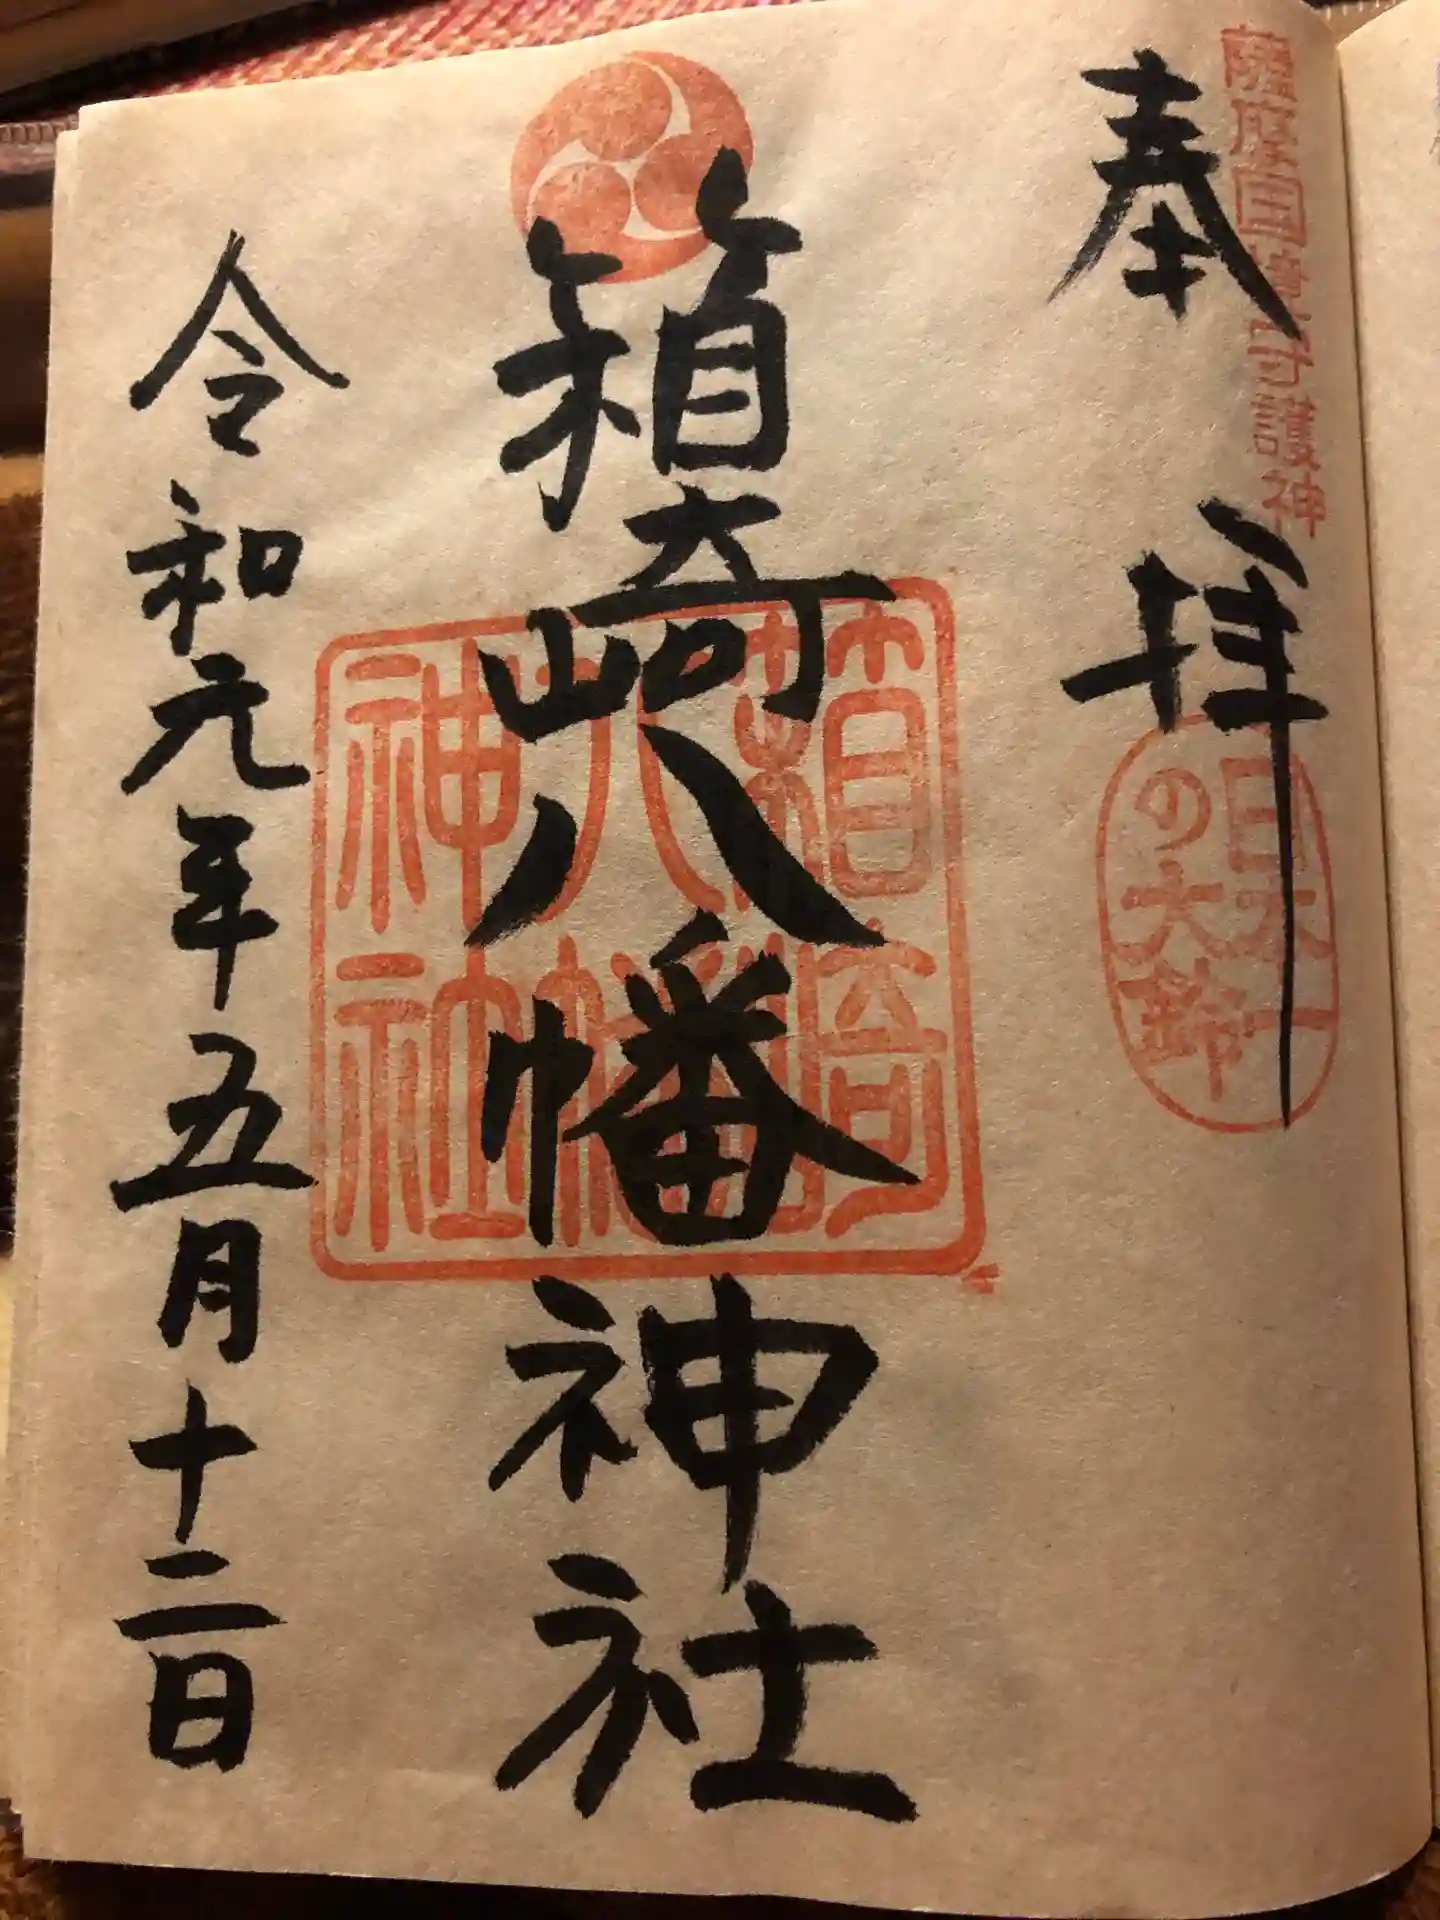 薩摩国鎮守護神
奉拝
日本一
の大鈴
箱崎八幡神社
箱崎
八幡
神社
令和元年五月十二日